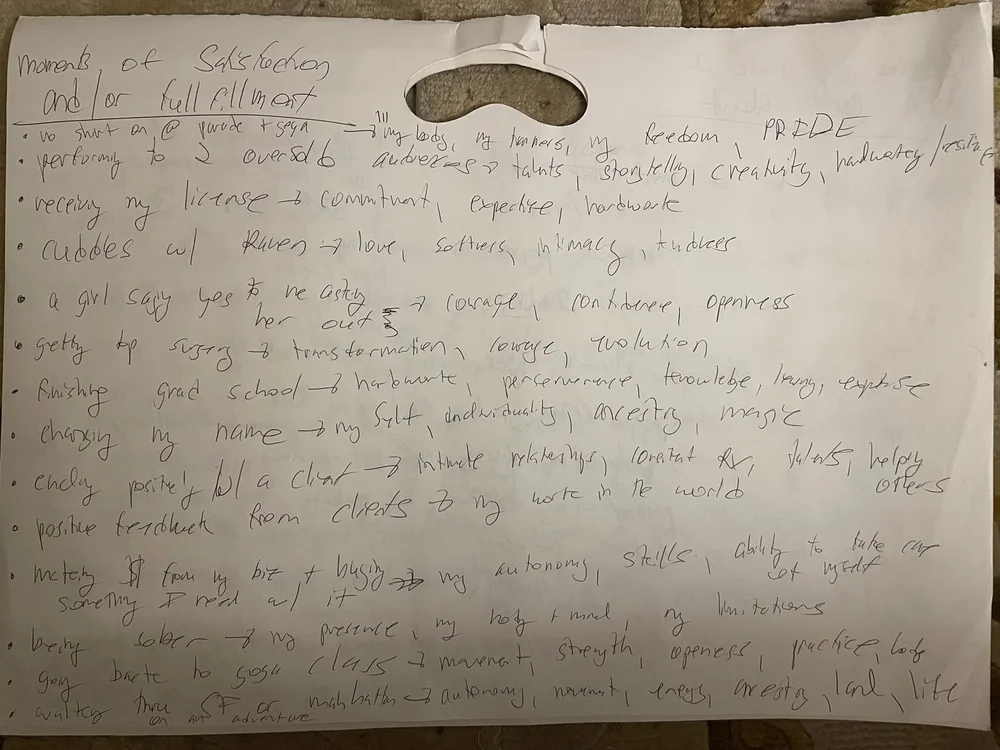 moments of Satisfaction
and/or fullfillment
• no shirt on @ parade + yoga → my body, my hunners, my freedom, PRIDE
• performing to 2 oversold audiences → talents, storytelling, creativity, hardwork/
• receiving my license → commitment, expertise, hardwork
• cuddles w/ Raven → love, softness, intimacy, tenderness
• a girl saying yes to me asking → courage, confidence, openness
her out
• getting top surgery → transformation, courage, evolution
• finishing grad school → hardwork, perserverance, knowledge, expertise
• changing my name → my self, individuality, ancestry, magic
• ending positively w/ a client → intimate relationships, talents, helping
others
• positive feedback from clients → my work in the world
• making $ from my biz + buying → my autonomy, skills, ability to take care
something I need w/ it of myself
• being sober → my presence, my body + mind, my limitations
• going back to yoga class → movement, strength, openess, practice, body
• walking thru SF or manhattan → autonomy, movement, energy, ancestry, land, life
on an adventure